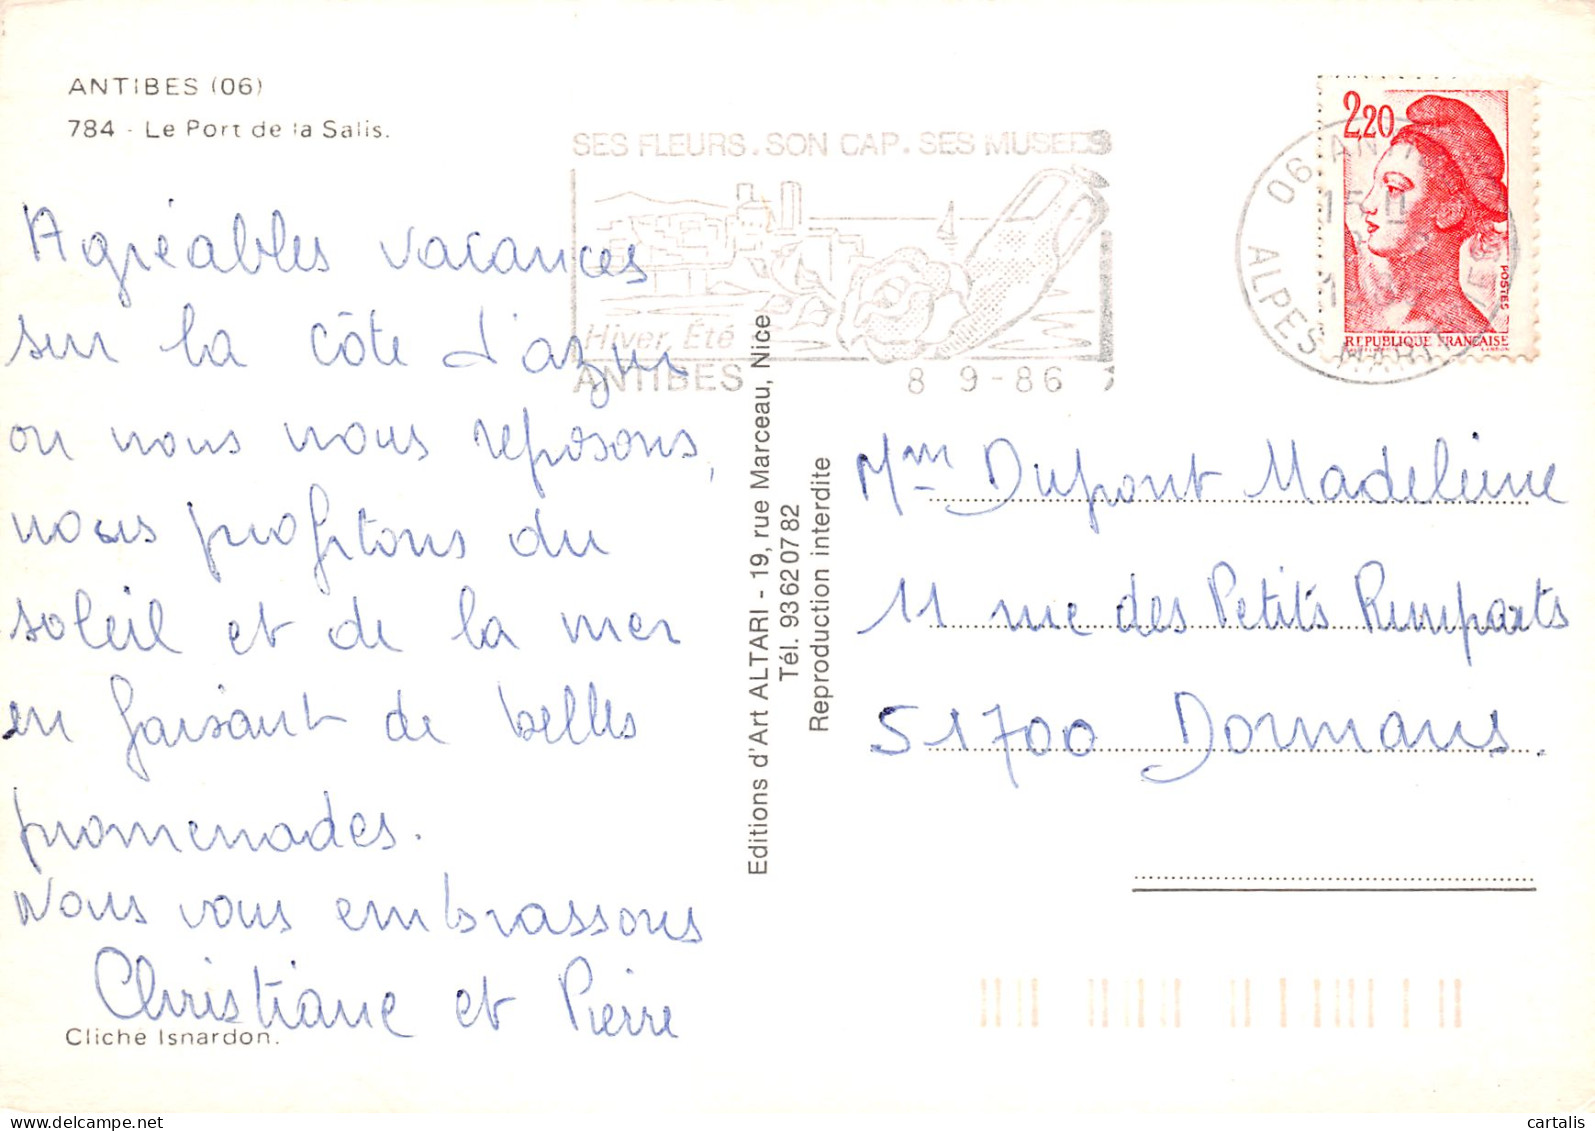 ANTIBES (06)
784 - Le Port de la Salis.
Agréables vacances
sur la côte d'azur
ou nous nous reposons,
nous profitons du
soleil et de la mer
en faisant de belles
promenades.
Nous vous embrassons
Christiane et Pierre
Cliché Isnardon.
SES FLEURS. SON CAP. SES MUSEES
Hiver, Été
ANTIBES
8 9-86
Editions d'Art ALTARI - 19, rue Marceau, Nice
Tél. 93 62 07 82
Reproduction interdite
2,20
POSTES
REPUBLIQUE FRANÇAISE
06 ANTIBES
15 H
ALPES MARITIMES
Mme Dupont Madeleine
11 rue des Petits Remparts
51700 Dormans.
delcampe.net
cartalis